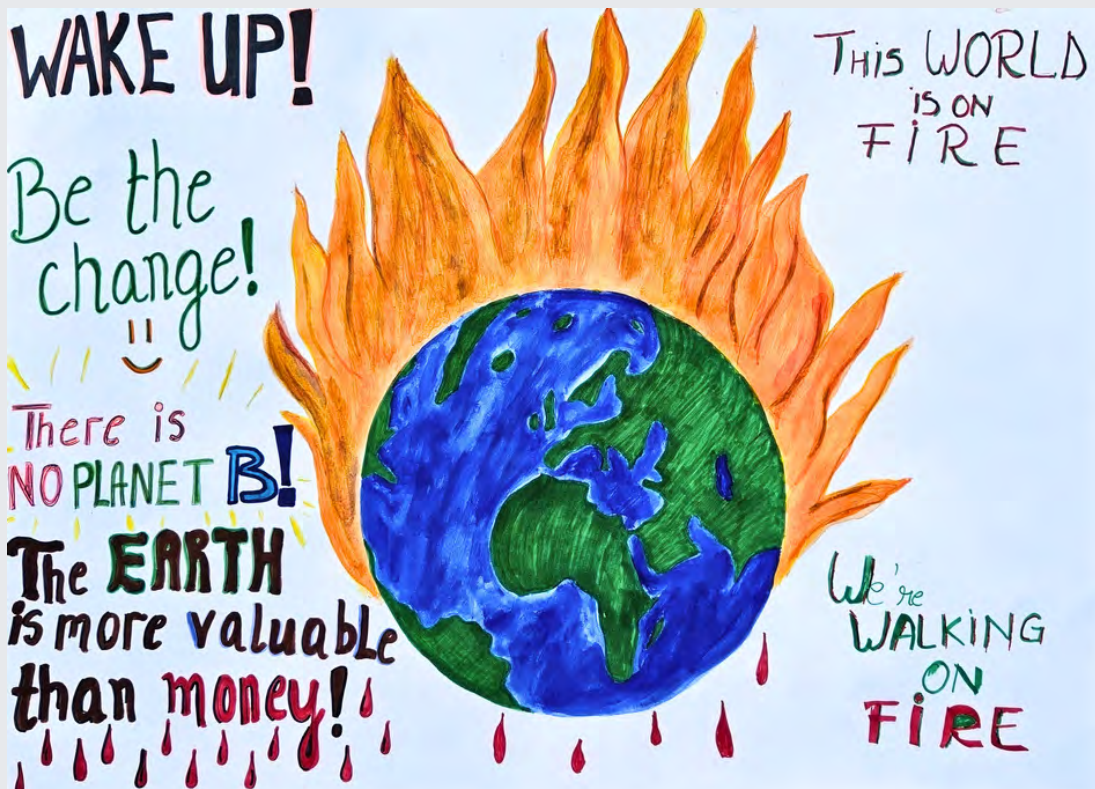 WAKE UP!
Be the
change!
There is
NO PLANET B!
The EARTH
is more valuable
than money!
THis WORLD
iS ON
FiRE
We're
WALKiNG
ON
FiRE